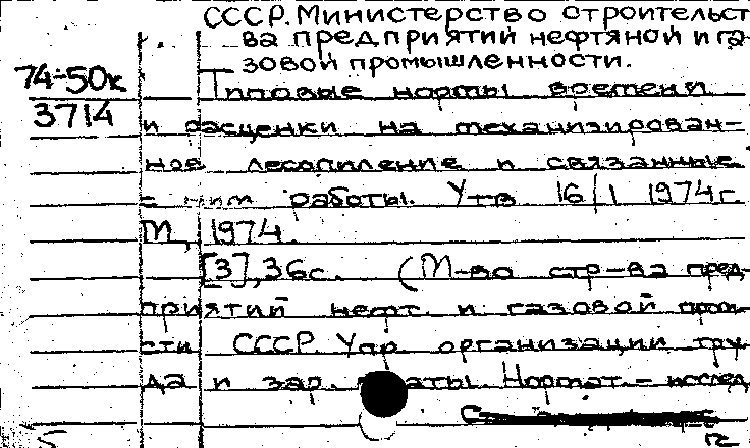 СССР. Министерство строительст
ва предприятий нефтяной и га
зовой промышленности.
74-50к
3714
Типовые нормы времени
и расценки на механизирован-
ное лесопиление и связанные
с ним работы. Утв 16/I 1974г.
М, 1974.
[3], 36с. (М-во стр-ва пред-
приятий нефт. и газовой пром
сти СССР. Упр организации тру
да и зар. платы. Нормат.-исслед